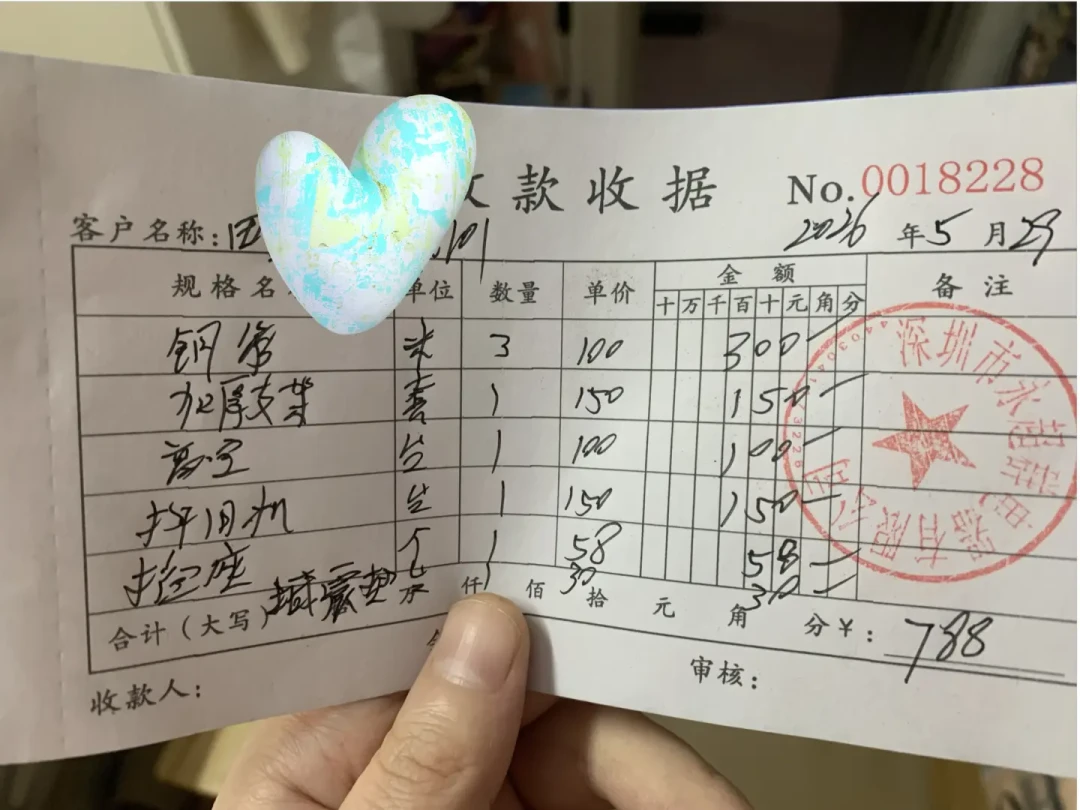 款收据 No.0018228
客户名称: 101 2026年5月29
规格名 单位 数量 单价 金额 备注
十万千百十元角分
铜管 米 3 100 300
加厚支架 套 1 150 150
高空 台 1 100 100
拆旧机 台 1 150 150
插座 个 1 58 58
减震垫 1 30 30
合计(大写) 仟 佰 拾 元 角 分¥: 788
收款人: 审核:
深圳市永 电器有限公司